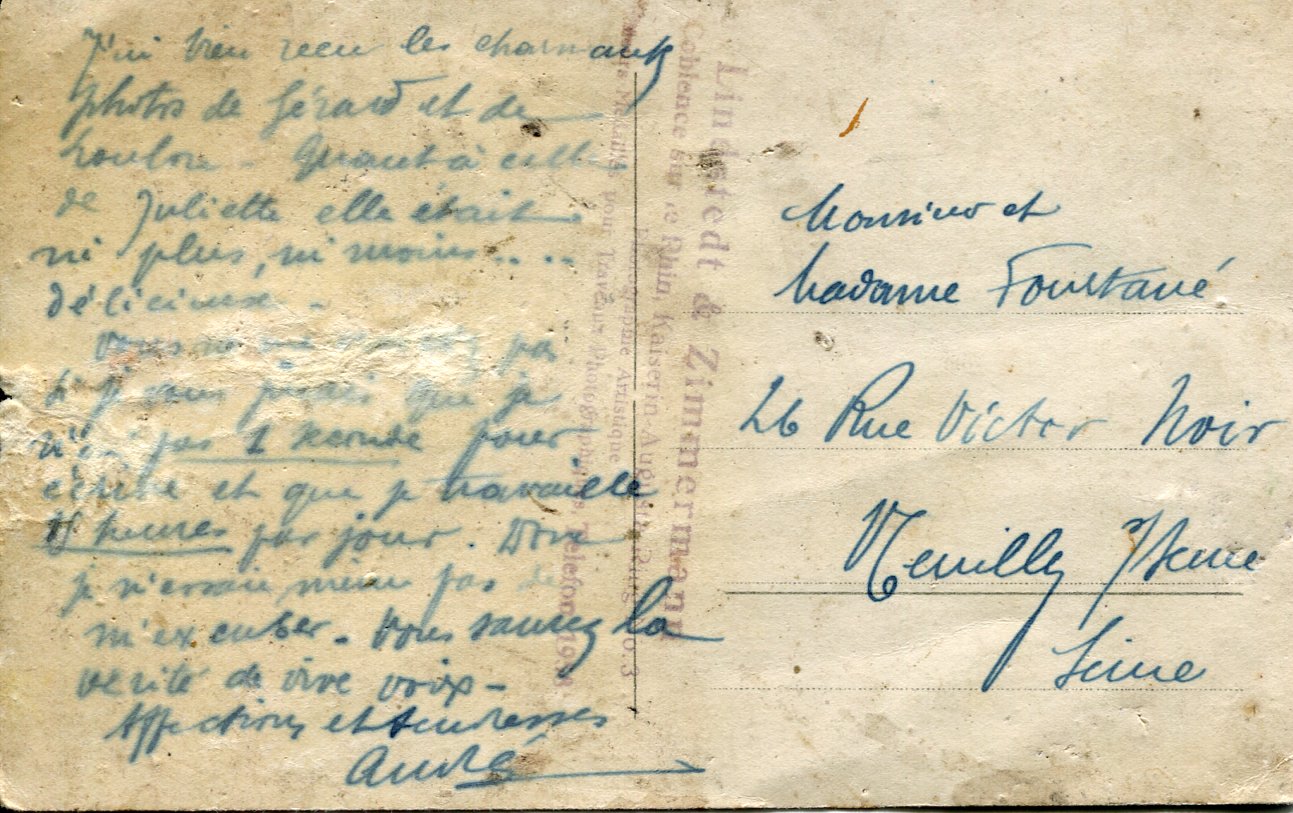 J'ai bien recu les charmants
photos de Gérard et de
Quant à celle
de Juliette elle était
ni plus, ni moins....
délicieuse -
Vous ne pas
si je vous disais que je
n'ai pas 1 seconde pour
écrire et que je travaille
heures par jour. Donc
je n'essaie même pas de
m'excuser - Vous saurez la
verité de vive voix -
Affections et tendresses
André
Monsieur et
Madame Foustané
26 Rue Victor Noir
Neuilly s/Seine
Seine
Lindstedt & Zimmermann
Coblence sur le Rhin, Kaiserin-Augusta-Ring No. 3
Photographie Artistique
pour Travaux Photographiques Telefon